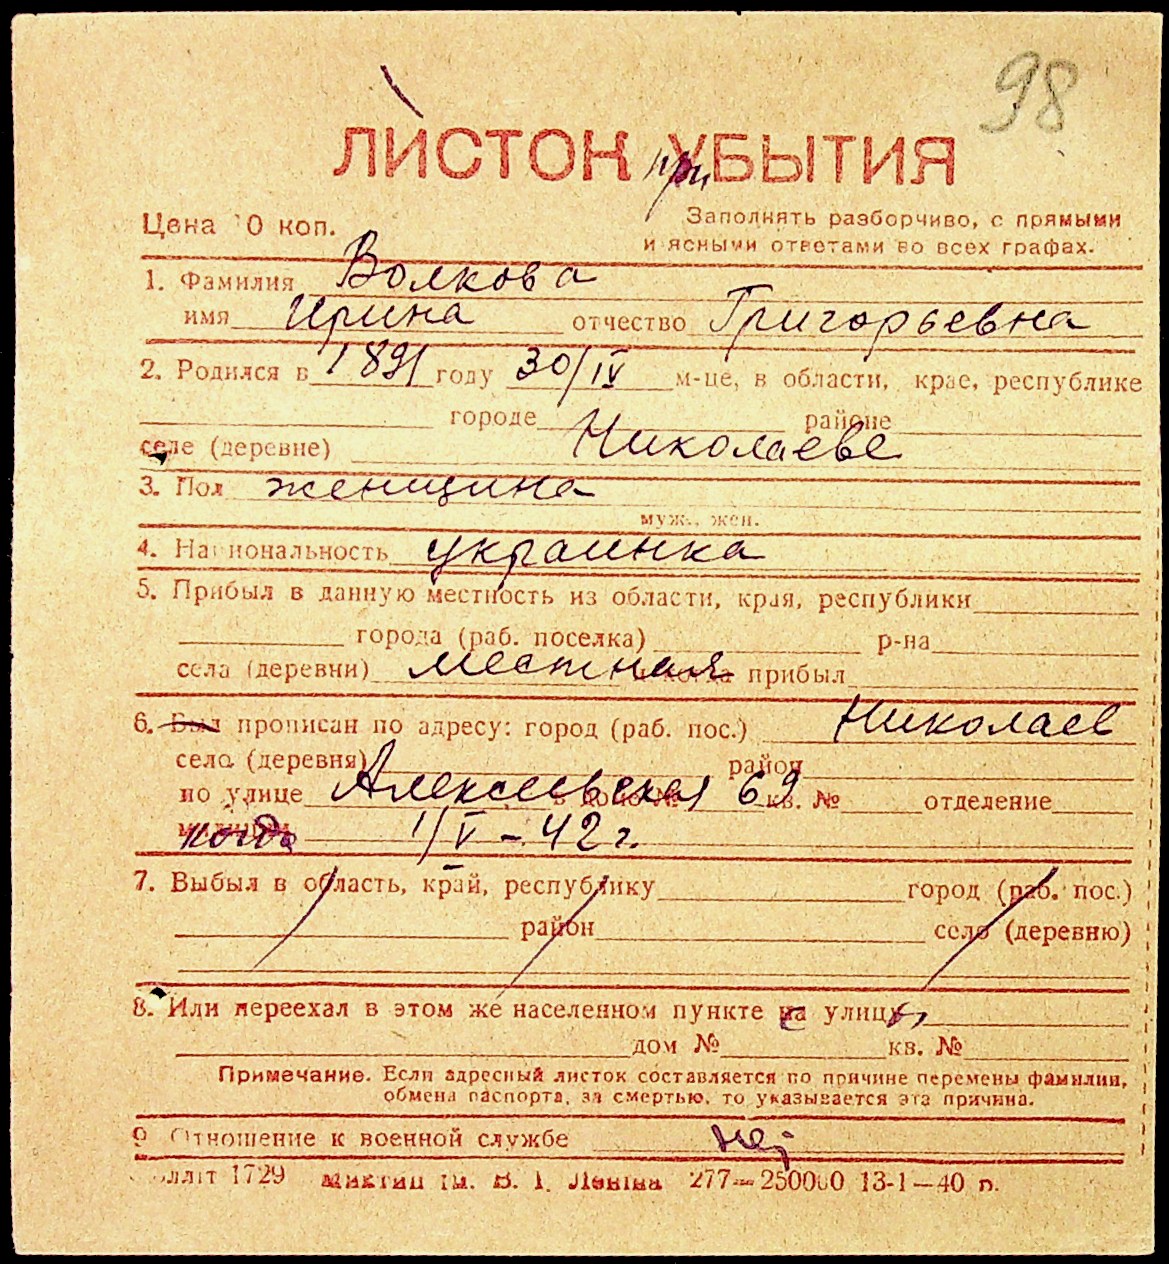 98
ЛИСТОК при УБЫТИЯ
Цена 10 коп.
Заполнять разборчиво, с прямыми
и ясными ответами во всех графах.
1. Фамилия Волкова
имя Ирина отчество Григорьевна
2. Родился в 1891 году 30/IV м-це, в области, крае, республике
городе районе
селе (деревне) Николаеве
3. Пол женщина
муж., жен.
4. Национальность украинка
5. Прибыл в данную местность из области, края, республики
города (раб. поселка) р-на
села (деревни) местная и когда прибыл
6. Был прописан по адресу: город (раб. пос.) Николаев
село (деревня) район
по улице Алексеевская в доме № 69 кв. № отделение
милиции когда 1/V-42 г.
7. Выбыл в область, край, республику город (раб. пос.)
район село (деревню)
8. Или переехал в этом же населенном пункте с улицы
дом № кв. №
Примечание. Если адресный листок составляется по причине перемены фамилии,
обмена паспорта, за смертью, то указывается эта причина.
9. Отношение к военной службе нет
1729 В. І. Леніна 277—250000 13-1—40 р.